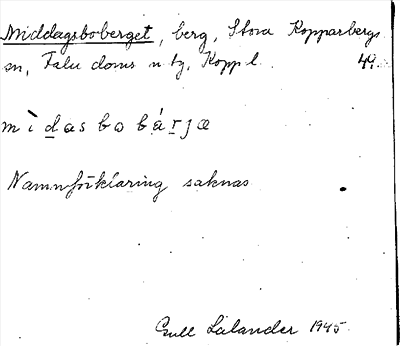 Middagsboberget, berg, Stora Kopparbergs
sn, Falu doms n tg, Kopp l. 49.
mìdasbobárjæ
Namnförklaring saknas
Gull Lälander 1945